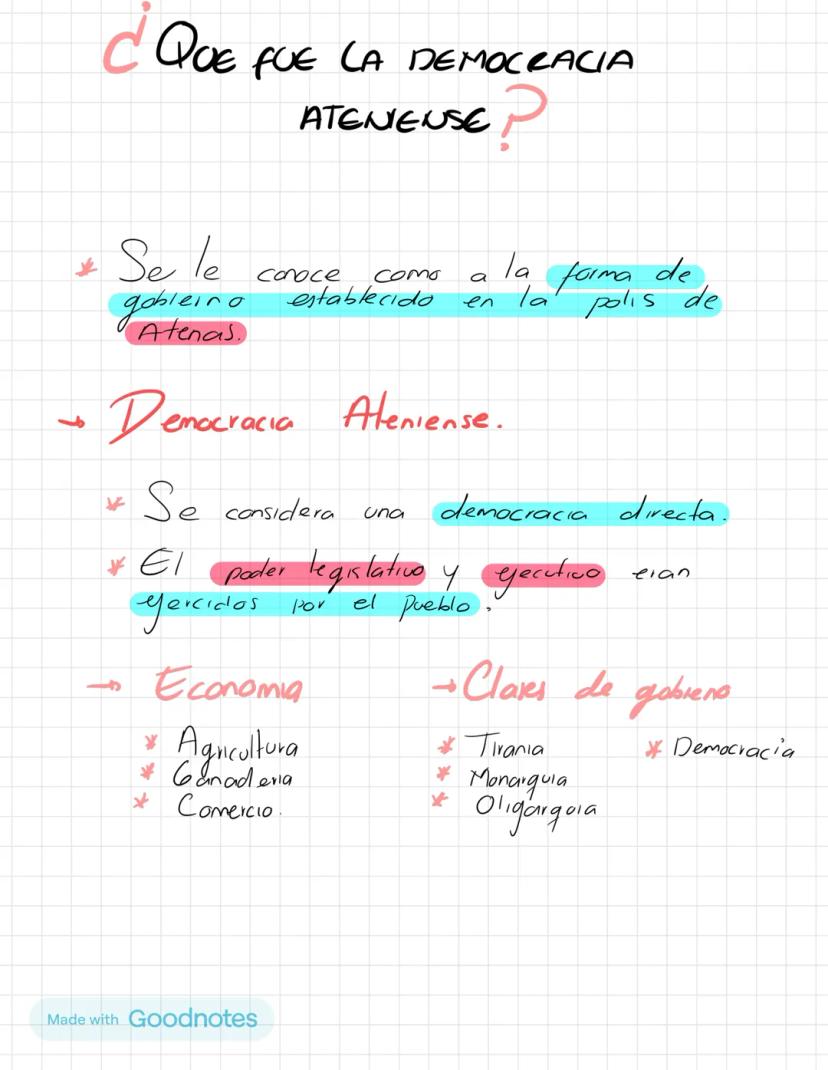 ¿QUE FUE LA DEMOCRACIA
ATENIENSE?
* Se le conoce como a la forma de
gobierno establecido en la polis de
Atenas.
→ Democracia Ateniense.
* Se considera una democracia directa.
* El poder legislativo y ejecutivo eran
ejercidos por el pueblo.
→ Economia
* Agricultura
* Ganaderia
* Comercio.
→ Clases de gobierno
* Tirania
* Monarquia
* Oligarquia
* Democracia
Made with Goodnotes